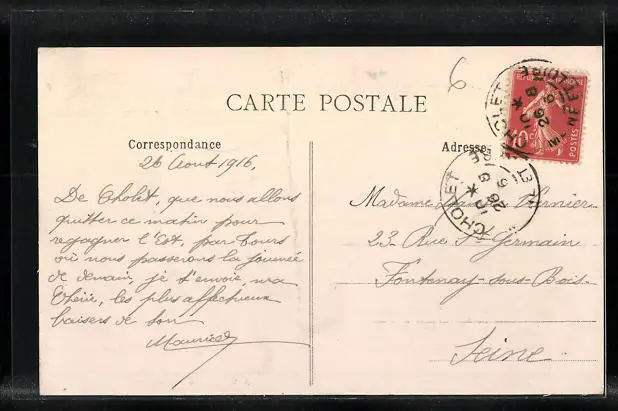 CARTE POSTALE
Correspondance
Adresse
6
26 Aout 1916.
De Cholet, que nous allons
quitter ce matin pour
regagner l'Est, par Tours
où nous passerons la journée
de demain, je t'envoie, ma
Chérie, les plus affectueux
baisers de ton
Maurice
Madame Vernier
23. Rue St Germain
Fontenay-sous-Bois
Seine
CHOLET
26
MNE ET LOIRE
10c
POSTES
CHOLET
26